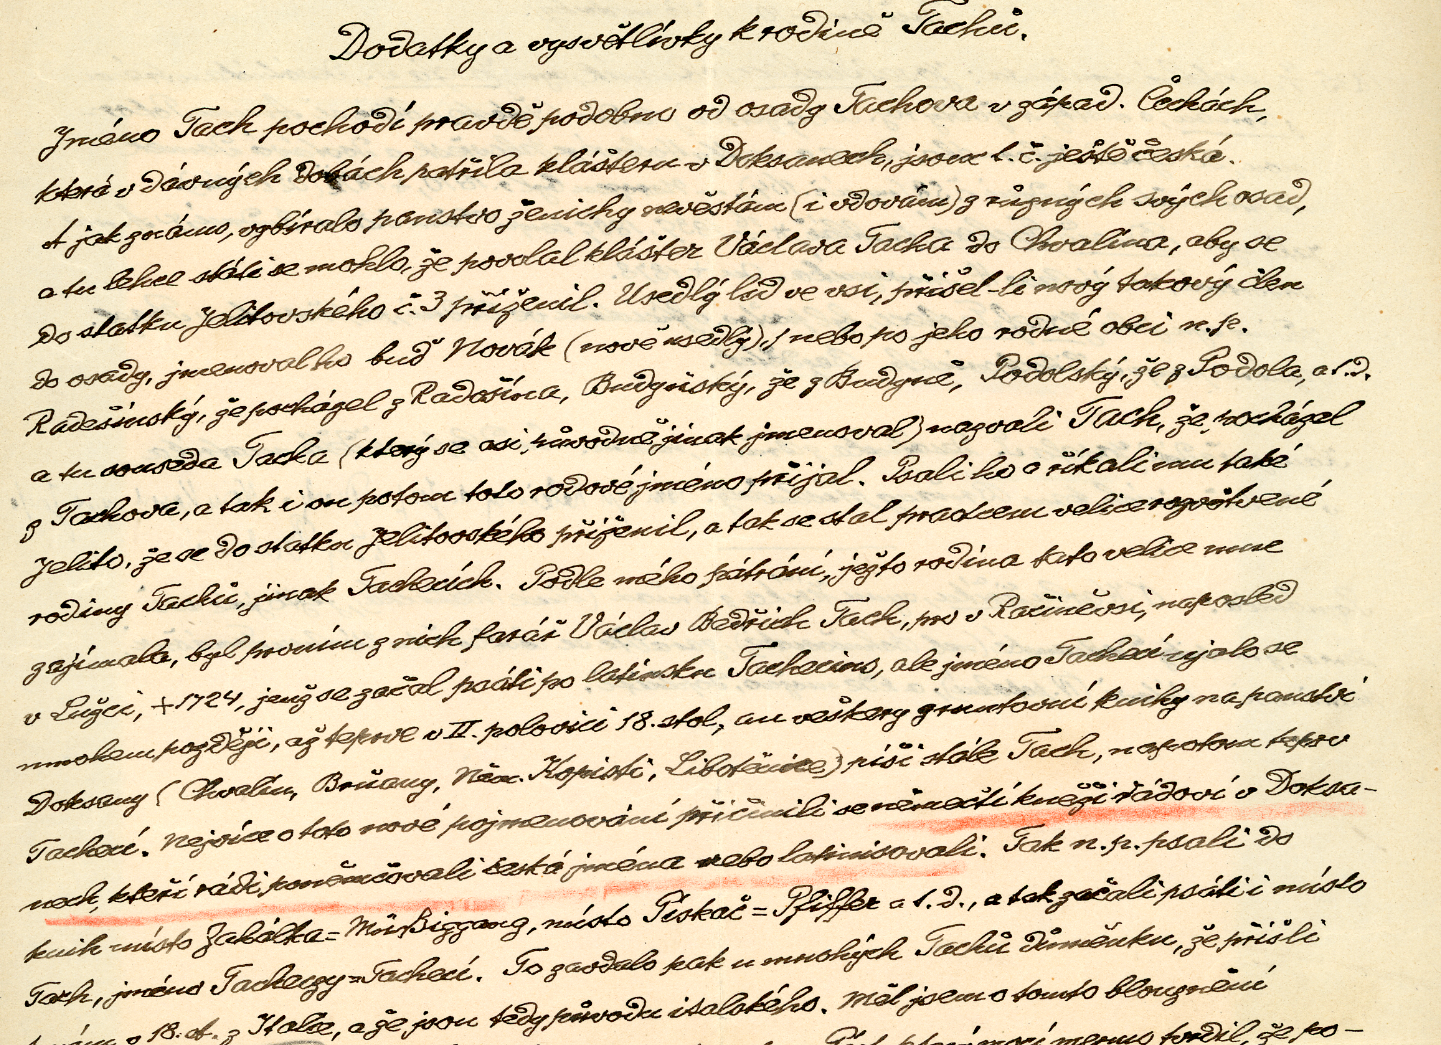 Dodatky a vysvětlivky k rodině Tachů.
Jméno Tach pochodí pravděpodobno od osady Tachova v západ. Čechách,
která v dávných dobách patřila klášteru v Doksanech, jsouc t. č. ještě česká.
A jak známo, vybíralo panstvo ženichy nevěstám (i vdovám) z různých svých osad,
a tu lehce státi se mohlo, že povolal klášter Václava Tacha do Chvalína, aby se
do statku Jelitovského č. 3 přiženil. Usedlý lid ve vsi, přišel-li nový takový člen
do osady, jmenoval ho buď Novák (nově usedlý), nebo po jeho rodné obci n. p.
Radešínský, že pocházel z Radošína, Budyňský, že z Budyně, Podolský, že z Podola, a t. d.
a tu souseda Tacha (který se asi původně jinak jmenoval) nazvali Tach, že pocházel
z Tachova, a tak i on potom toto rodové jméno přijal. Psali ho a říkali mu také
Jelito, že se do statku Jelitovského přiženil, a tak se stal praotcem velice rozvětvené
rodiny Tachů, jinak Tachecích. Podle mého pátrání, ježto rodina tato velice mne
zajímala, byl prvním z nich farář Václav Bedřich Tach, prv v Račiněvsi, naposled
v Lužci, +1724, jenž se začal psáti po latinsku Tachecius, ale jméno Tachecí ujalo se
mnohem později, až teprve v II. polovici 18. stol., an veškery gruntovní knihy na panství
Doksany (Chvalín, Brňany, Něm. Kopisti, Libotěnice) píší stále Tach, napotom teprv
Tachecí. Nejvíce o toto nové pojmenování přičinili se němečtí kněží řádoví v Doksa-
nech, kteří rádi poněmčovali česká jména nebo latinisovali. Tak n. p. psali do
knih místo Zahálka = Müßiggang, místo Pískač = Pfiffer a t. d., a tak začali psáti i místo
Tach, jméno Tacheczy = Tachecí. To zavdalo pak u mnohých Tachů domněnku, že přišli
18. st. z Italie, a že jsou tedy původu italského. Měl jsem o tomto blouznění
tvrdil, že po-